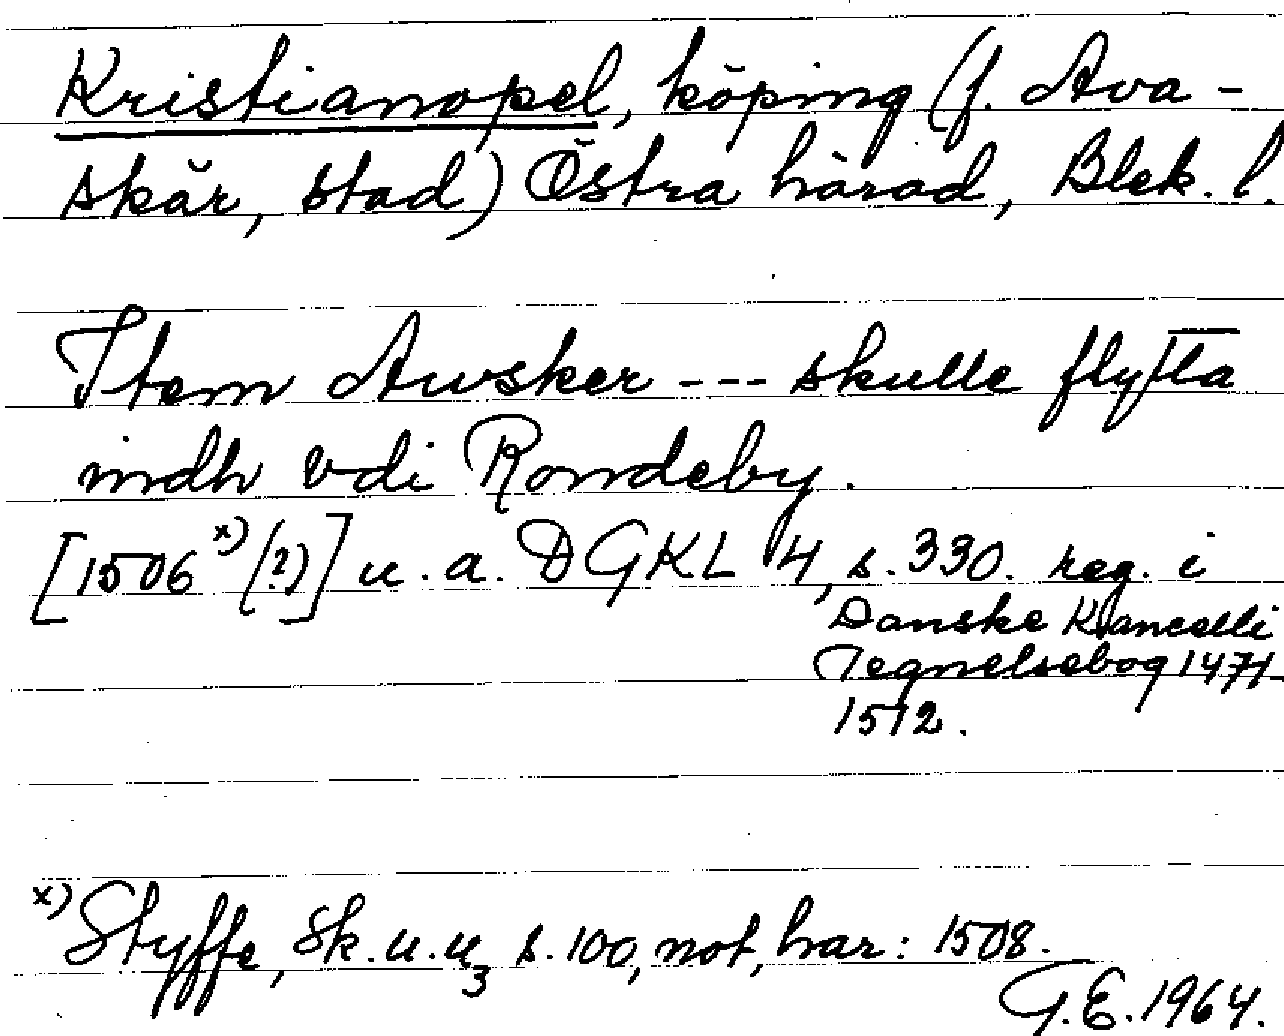 Kristianopel, köping (f. Ava-
skär, stad) Östra härad, Blek. l.
Item Awsker --- skulle flytta
indh vdi Rondeby.
[1506 x) (?)] u. a. DGKL 4, s. 330. reg. i
Danske Kancelli
Tegnelsebog 1471
1512.
x) Styffe, Sk. u. u3 s. 100, not, har: 1508.
G.E. 1964.